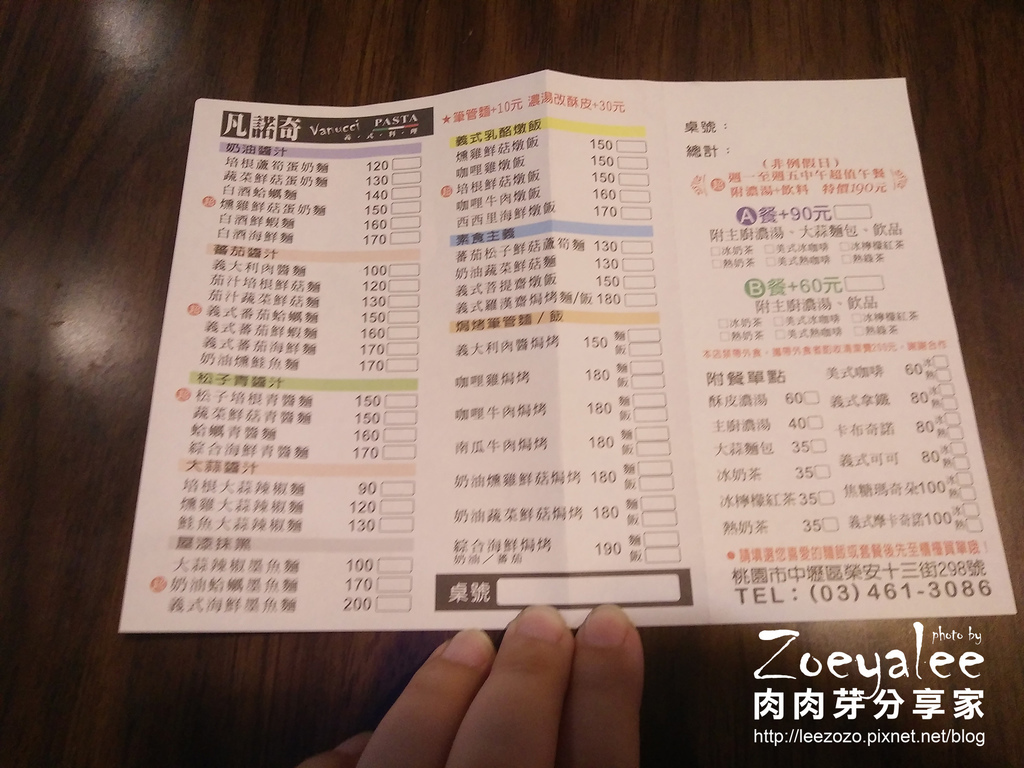 凡諾奇 Vanucci PASTA
義式料理
奶油醬汁
培根蘆筍蛋奶麵 120
蔬菜鮮菇蛋奶麵 130
白酒蛤蠣麵 140
超 燻雞鮮菇蛋奶麵 150
白酒鮮蝦麵 160
白酒海鮮麵 170
蕃茄醬汁
義大利肉醬麵 100
茄汁培根鮮菇麵 120
茄汁蔬菜鮮菇麵 130
超 義式蕃茄蛤蠣麵 150
義式蕃茄鮮蝦麵 160
義式蕃茄海鮮麵 170
奶油燻鮭魚麵 170
松子青醬汁
超 松子培根青醬麵 150
蔬菜鮮菇青醬麵 150
蛤蠣青醬麵 160
綜合海鮮青醬麵 170
大蒜醬汁
培根大蒜辣椒麵 90
燻雞大蒜辣椒麵 120
鮭魚大蒜辣椒麵 130
屋漆抹黑
大蒜辣椒墨魚麵 100
超 奶油蛤蠣墨魚麵 170
義式海鮮墨魚麵 200
★筆管麵+10元 濃湯改酥皮+30元
義式乳酪燉飯
燻雞鮮菇燉飯 150
咖哩雞燉飯 150
超 培根鮮蝦燉飯 150
咖哩牛肉燉飯 160
西西里海鮮燉飯 170
素食主義
蕃茄松子鮮菇蘆筍麵 130
奶油蔬菜鮮菇麵 130
義式菩提齋燉飯 150
義式羅漢齋焗烤麵/飯 180
焗烤筆管麵/飯
義大利肉醬焗烤 150 麵 飯
咖哩雞焗烤 180 麵 飯
咖哩牛肉焗烤 180 麵 飯
南瓜牛肉焗烤 180 麵 飯
奶油燻雞鮮菇焗烤 180 麵 飯
奶油蔬菜鮮菇焗烤 180 麵 飯
綜合海鮮焗烤 190 麵 飯
奶油/蕃茄
桌號
桌號：
總計：
(非例假日)
超 週一至週五中午超值午餐
附濃湯+飲料 特價190元
A餐+90元
附主廚濃湯、大蒜麵包、飲品
□冰奶茶 □美式冰咖啡 □冰檸檬紅茶
□熱奶茶 □美式熱咖啡 □熱綠茶
B餐+60元
附主廚濃湯、飲品
□冰奶茶 □美式冰咖啡 □冰檸檬紅茶
□熱奶茶 □美式熱咖啡 □熱綠茶
本店禁帶外食，攜帶外食者酌收清潔費200元，謝謝合作
附餐單點
酥皮濃湯 60
主廚濃湯 40
大蒜麵包 35
冰奶茶 35
冰檸檬紅茶 35
熱奶茶 35
美式咖啡 60 冰 熱
義式拿鐵 80 冰 熱
卡布奇諾 80 冰 熱
義式可可 80 冰 熱
焦糖瑪奇朵 100 冰 熱
義式摩卡奇諾 100 冰 熱
●請填選您喜愛的麵飯或套餐後先至櫃檯買單哦！
桃園市中壢區榮安十三街298號
TEL：(03)461-3086
photo by
Zoeyalee
肉肉芽分享家
http://leezozo.pixnet.net/blog